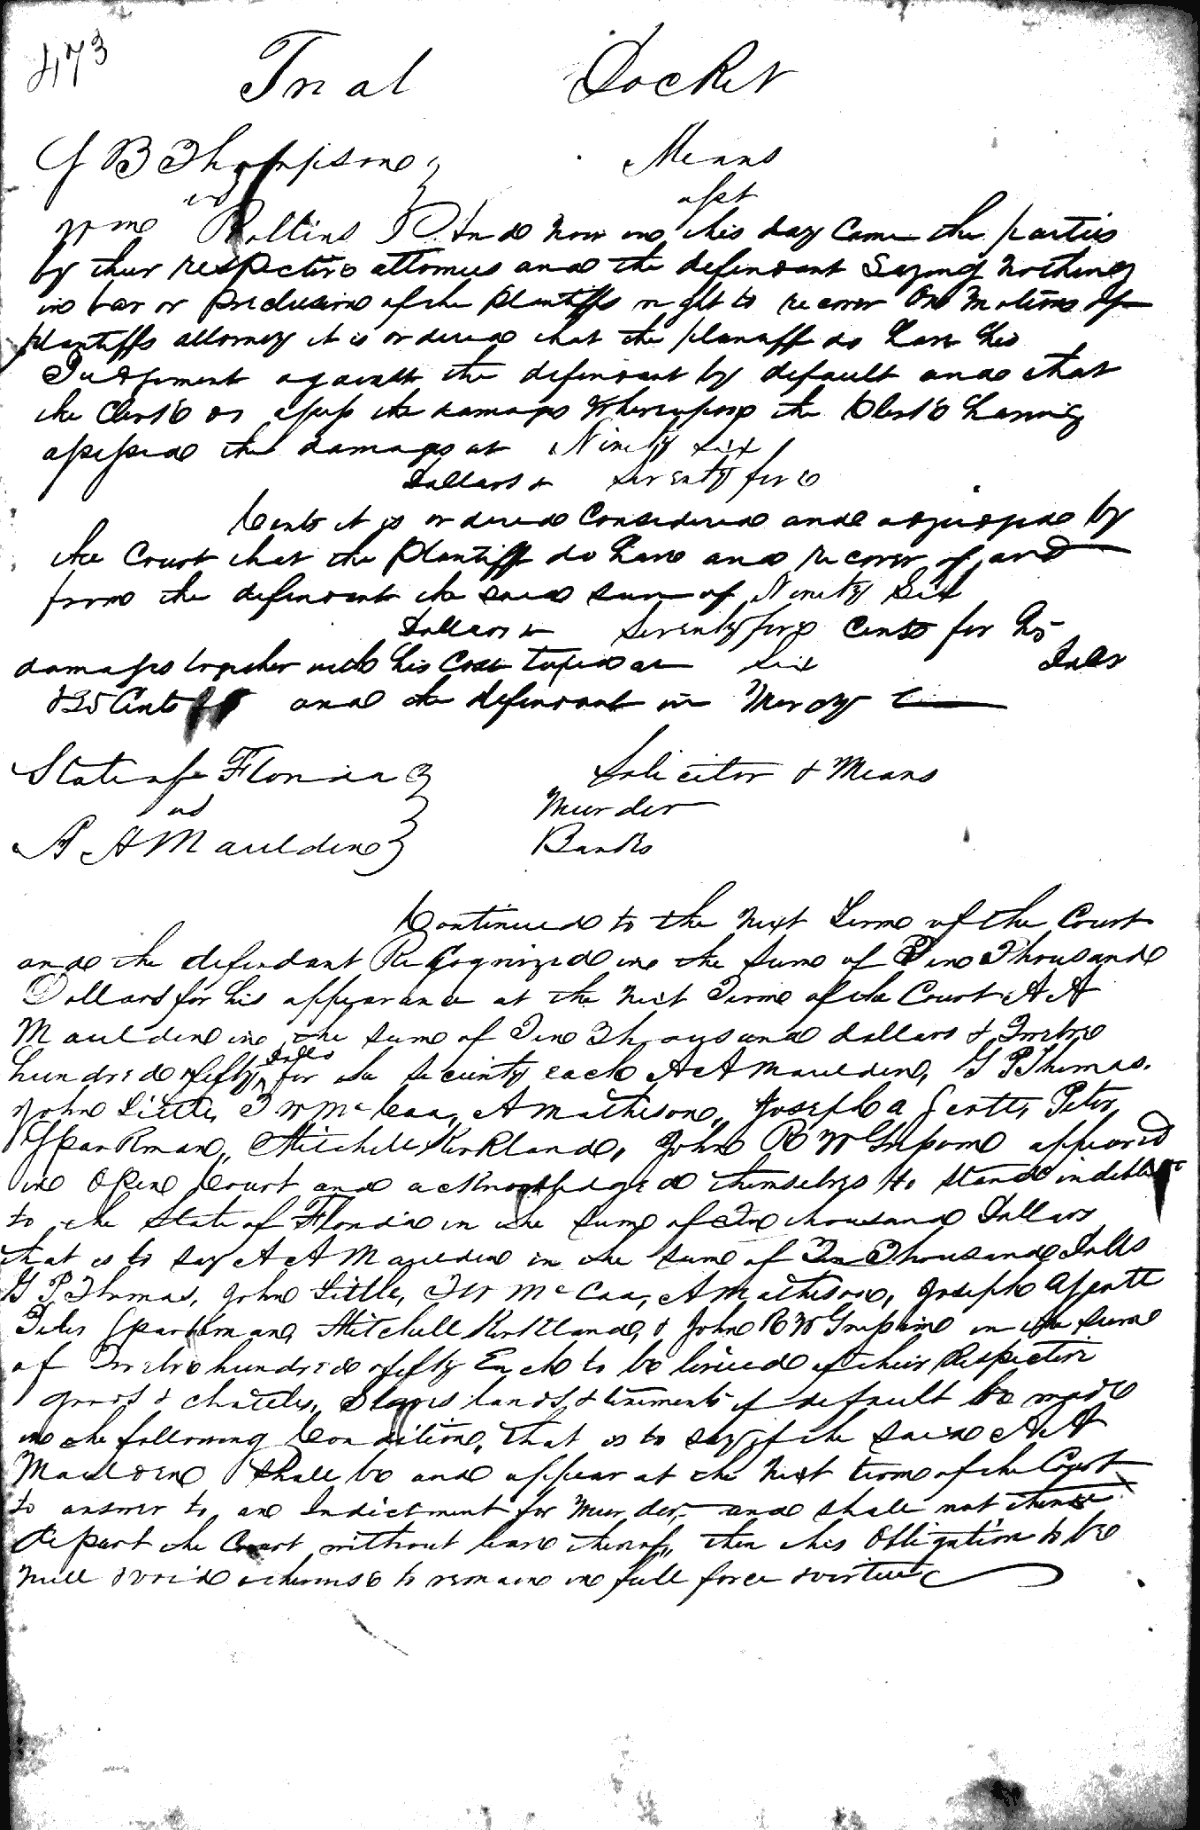 473
Trial Docket
J B Thompson } Means
vs } asst
Wm Rollins } And now on this day Came the parties
by their respective attornies and the defendant Saying nothing
in bar or preclusion of the Plantiffs right to recover On Motion of
plantiffs attorney it is ordered that the plantiff do have his
Judgement against the defendant by default and that
the Clerk do assess the damages Whereupon the Clerk having
assessed the damages at Ninety six
Dollars & Seventy five
Cents it is ordered Considered and adjudged by
the Court that the Plantiff do have and recover of and
from the defendant the said sum of Ninety Six
Dollars & Seventy five Cents for his
damages together with his Cost taxed at Six Dolls
& 25 Cents and the defendant in Mercy &
State of Florida } Solicitor & Means
vs } Murder
A A Mauldin } Banks
Continued to the next Term of the Court
and the defendant Recognized in the Sum of Ten Thousand
Dollars for his appearance at the next Term of the Court A A
Mauldin in the sum of Ten Thousand dollars & Twelve
hundred & fifty Dolls for the Security each A A Mauldin, G P Thomas.
John Little, T W McCaa, A Mathison, Joseph A Gentt, Peter
Sparkman, Mitchell Kirkland, John R W appeared
in Open Court and acknowledged themselves to stand indebted
to the State of Florida in the Sum of Ten thousand Dollars
that is to say A A Mauldin in the Sum of Ten Thousand Dolls
G P Thomas, John Little, T W McCaa, A Mathison, Joseph A Gentt
Peter Sparkman, Mitchell Kirkland, & John R W in the Sum
of Twelve hundred & fifty Each to be levied of their Respective
goods & chattles, Slaves lands & tenements if default be made
in the following Condition, That is to say if the said A A
Mauldin Shall be and appear at the next term of the Court
to answer to an Indictment for Murder and shall not thence
depart the Court without leave thereof, then this Obligation to be
null & void otherwise to remain in full force & virtue